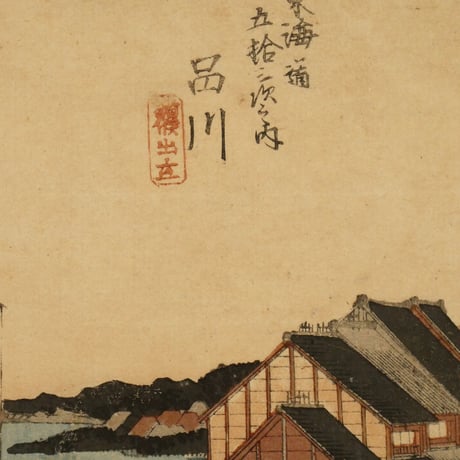 東海道
五拾三次之内
品川
諸侯出立